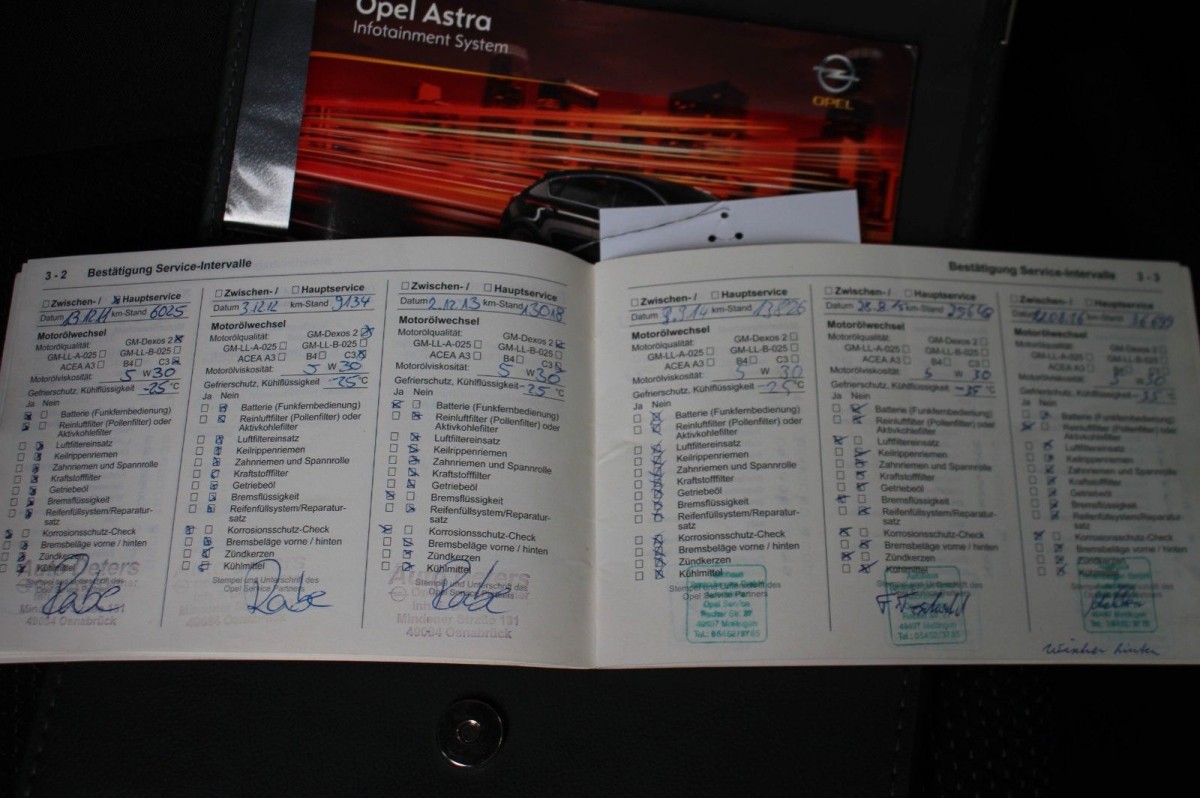 Opel Astra
Infotainment System
OPEL
3 - 2 Bestätigung Service-Intervalle
Zwischen- / Hauptservice
Datum 13.12.11 km-Stand 6025
Motorölwechsel
Motorölqualität: GM-Dexos 2
GM-LL-A-025 GM-LL-B-025
ACEA A3 B4 C3
Motorölviskosität: 5 W 30
Gefrierschutz, Kühlflüssigkeit -25 °C
Ja Nein
Batterie (Funkfernbedienung)
Reinluftfilter (Pollenfilter) oder
Aktivkohlefilter
Luftfiltereinsatz
Keilrippenriemen
Zahnriemen und Spannrolle
Kraftstofffilter
Getriebeöl
Bremsflüssigkeit
Reifenfüllsystem/Reparatur-
satz
Korrosionsschutz-Check
Bremsbeläge vorne / hinten
Zündkerzen
Kühlmittel
Rabe
49084 Osnabrück
Zwischen- / Hauptservice
Datum 3.12.12 km-Stand 9134
Motorölwechsel
Motorölqualität: GM-Dexos 2
GM-LL-A-025 GM-LL-B-025
ACEA A3 B4 C3
Motorölviskosität: 5 W 30
Gefrierschutz, Kühlflüssigkeit -25 °C
Ja Nein
Batterie (Funkfernbedienung)
Reinluftfilter (Pollenfilter) oder
Aktivkohlefilter
Luftfiltereinsatz
Keilrippenriemen
Zahnriemen und Spannrolle
Kraftstofffilter
Getriebeöl
Bremsflüssigkeit
Reifenfüllsystem/Reparatur-
satz
Korrosionsschutz-Check
Bremsbeläge vorne / hinten
Zündkerzen
Kühlmittel
Stempel und Unterschrift des
Opel Service Partners
Rabe
Zwischen- / Hauptservice
Datum 2.12.13 km-Stand 13018
Motorölwechsel
Motorölqualität: GM-Dexos 2
GM-LL-A-025 GM-LL-B-025
ACEA A3 B4 C3
Motorölviskosität: 5 W 30
Gefrierschutz, Kühlflüssigkeit -25 °C
Ja Nein
Batterie (Funkfernbedienung)
Reinluftfilter (Pollenfilter) oder
Aktivkohlefilter
Luftfiltereinsatz
Keilrippenriemen
Zahnriemen und Spannrolle
Kraftstofffilter
Getriebeöl
Bremsflüssigkeit
Reifenfüllsystem/Reparatur-
satz
Korrosionsschutz-Check
Bremsbeläge vorne / hinten
Zündkerzen
Kühlmittel
Stempel und Unterschrift des
Rabe
Mindener Straße 131
49084 Osnabrück
Bestätigung Service-Intervalle 3 - 3
Zwischen- / Hauptservice
Datum 3.9.14 km-Stand 13826
Motorölwechsel
Motorölqualität: GM-Dexos 2
GM-LL-A-025 GM-LL-B-025
ACEA A3 B4 C3
Motorölviskosität: 5 W 30
Gefrierschutz, Kühlflüssigkeit -25 °C
Ja Nein
Batterie (Funkfernbedienung)
Reinluftfilter (Pollenfilter) oder
Aktivkohlefilter
Luftfiltereinsatz
Keilrippenriemen
Zahnriemen und Spannrolle
Kraftstofffilter
Getriebeöl
Bremsflüssigkeit
Reifenfüllsystem/Reparatur-
satz
Korrosionsschutz-Check
Bremsbeläge vorne / hinten
Zündkerzen
Kühlmittel
Opel Service
Zwischen- / Hauptservice
Datum km-Stand
Motorölwechsel
Motorölqualität: GM-Dexos 2
GM-LL-A-025 GM-LL-B-025
ACEA A3 B4 C3
Motorölviskosität: 5 W 30
Gefrierschutz, Kühlflüssigkeit °C
Ja Nein
Batterie (Funkfernbedienung)
Reinluftfilter (Pollenfilter) oder
Aktivkohlefilter
Luftfiltereinsatz
Keilrippenriemen
Zahnriemen und Spannrolle
Kraftstofffilter
Getriebeöl
Bremsflüssigkeit
Reifenfüllsystem/Reparatur-
satz
Korrosionsschutz-Check
Bremsbeläge vorne / hinten
Zündkerzen
Kühlmittel
Zwischen- / Hauptservice
Datum km-Stand
Motorölwechsel
Motorölqualität: GM-Dexos 2
GM-LL-A-025 GM-LL-B-025
ACEA A3
Motorölviskosität: 5 W 30
Gefrierschutz, Kühlflüssigkeit
Ja Nein
Batterie (Funkfernbedienung)
Reinluftfilter (Pollenfilter) oder
Aktivkohlefilter
Luftfiltereinsatz
Keilrippenriemen
Zahnriemen und Spannrolle
Kraftstofffilter
Getriebeöl
Bremsflüssigkeit
Reifenfüllsystem/Reparatur-
satz
Korrosionsschutz-Check
Bremsbeläge vorne / hinten
Zündkerzen
Kühlmittel
Wischer hinten